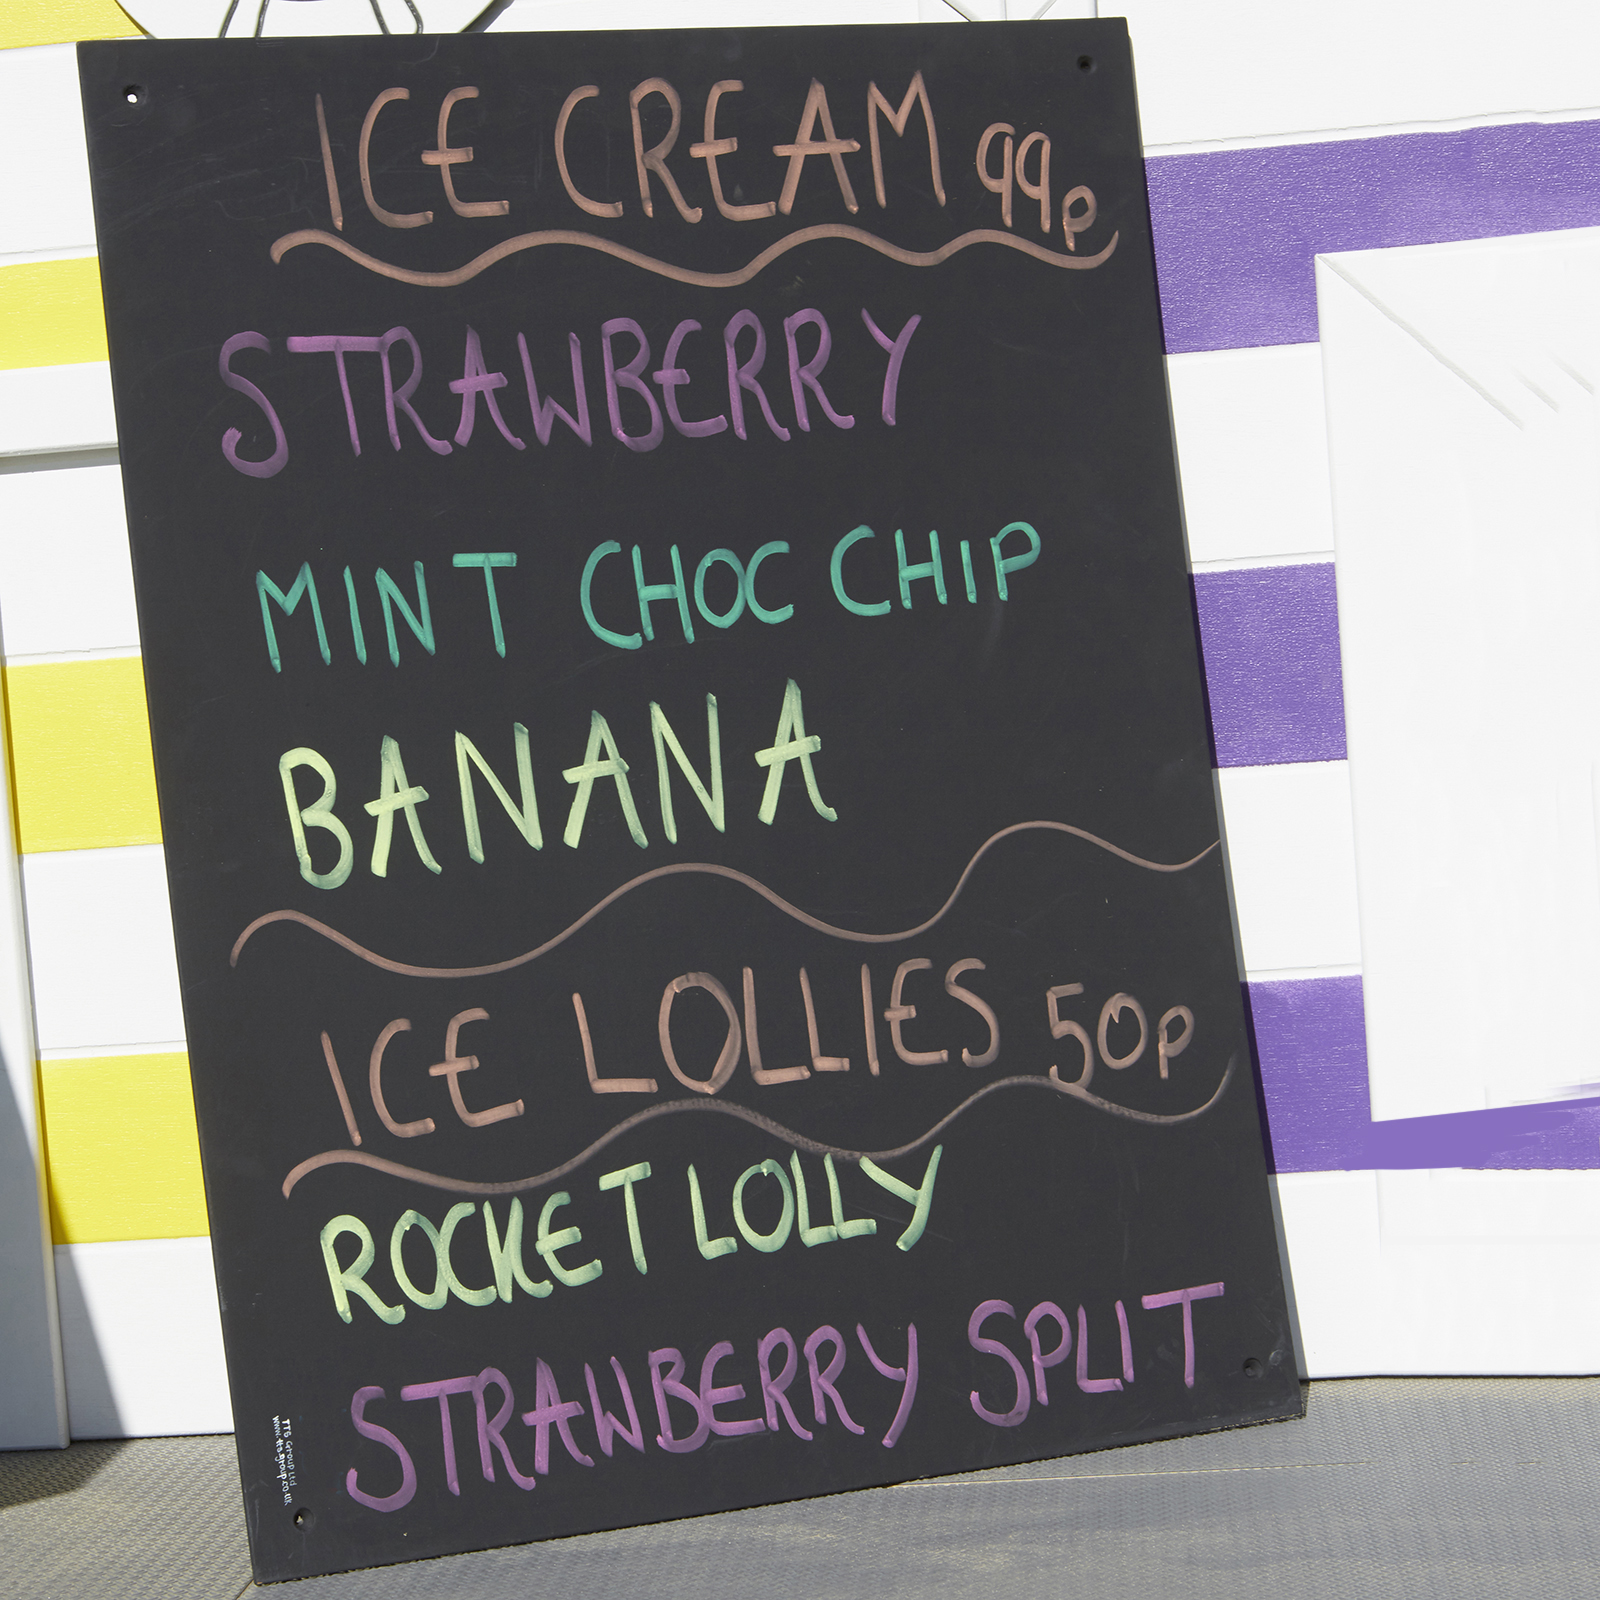 ICE CREAM 99p
STRAWBERRY
MINT CHOC CHIP
BANANA
ICE LOLLIES 50p
ROCKET LOLLY
STRAWBERRY SPLIT
TTS Group Ltd
www.tts-group.co.uk